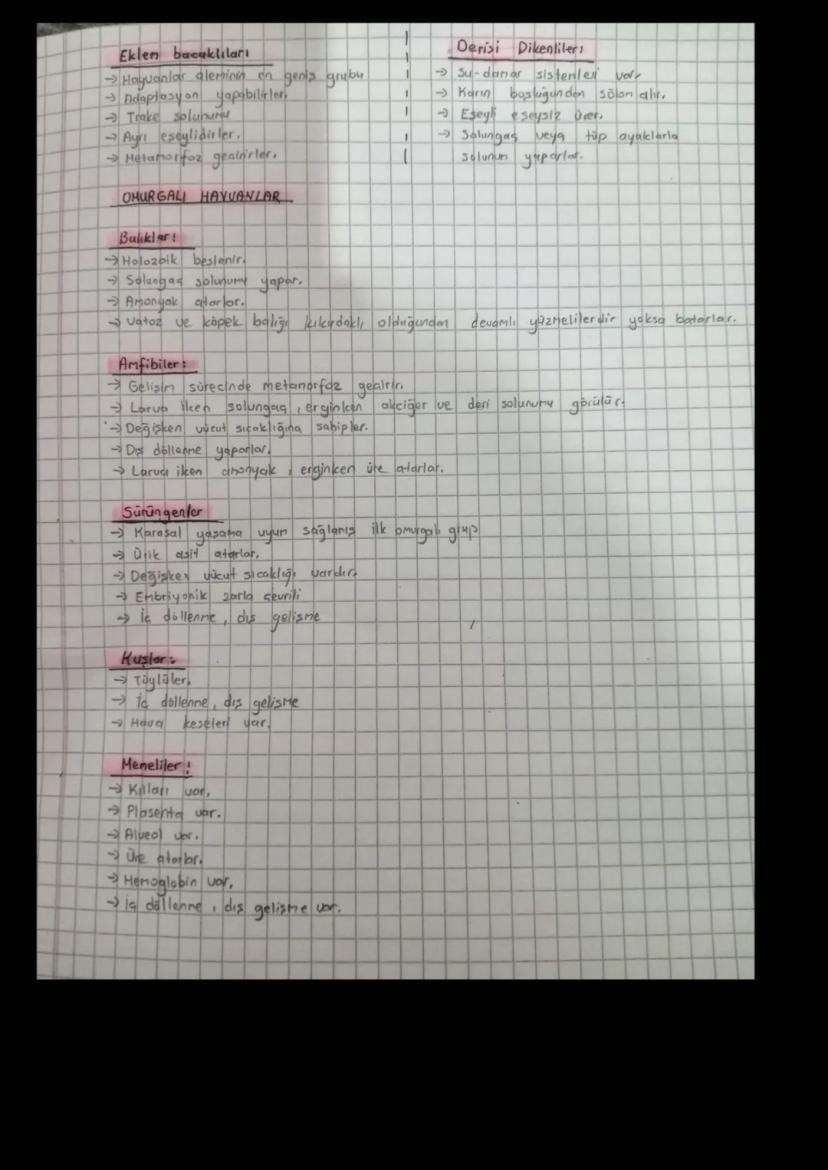 Eklem bacaklıları
→ Hayvanlar aleminin en geniş grubu
→ Adaptasyon yapabilirler.
→ Trake solunumu
→ Ayrı eşeylidirler.
→ Metamorfoz geçirirler.
Derisi Dikenliler:
→ Su-damar sistemleri var.
→ Karın boşluğundan sölom alır.
→ Eşeyli eşeysiz ürer.
→ Solungaç veya tüp ayaklarla
solunum yaparlar.
OMURGALI HAYVANLAR
Balıklar:
→ Holozoik beslenir.
→ Solungaç solunumu yapar.
→ Amonyak atarlar.
→ Vatoz ve köpek balığı kıkırdaklı olduğundan devamlı yüzmelilerdir yoksa batarlar.
Amfibiler:
→ Gelişim sürecinde metamorfoz geçirir.
→ Larva iken solungaç, erginken akciğer ve deri solunumu görülür.
→ Değişken vücut sıcaklığına sahipler.
→ Dış döllenme yaparlar.
→ Larva iken amonyak, erginken üre atarlar.
Sürüngenler
→ Karasal yaşama uyum sağlamış ilk omurgalı grup
→ Ürik asit atarlar.
→ Değişken vücut sıcaklığı vardır.
→ Embriyonik zarla çevrili
→ İç döllenme, dış gelişme
Kuşlar:
→ Tüylüler.
→ İç döllenme, dış gelişme
→ Hava keseleri var.
Memeliler:
→ Kılları var.
→ Plasenta var.
→ Alveol var.
→ Üre atarlar.
→ Hemoglobin var.
→ İç döllenme, dış gelişme var.